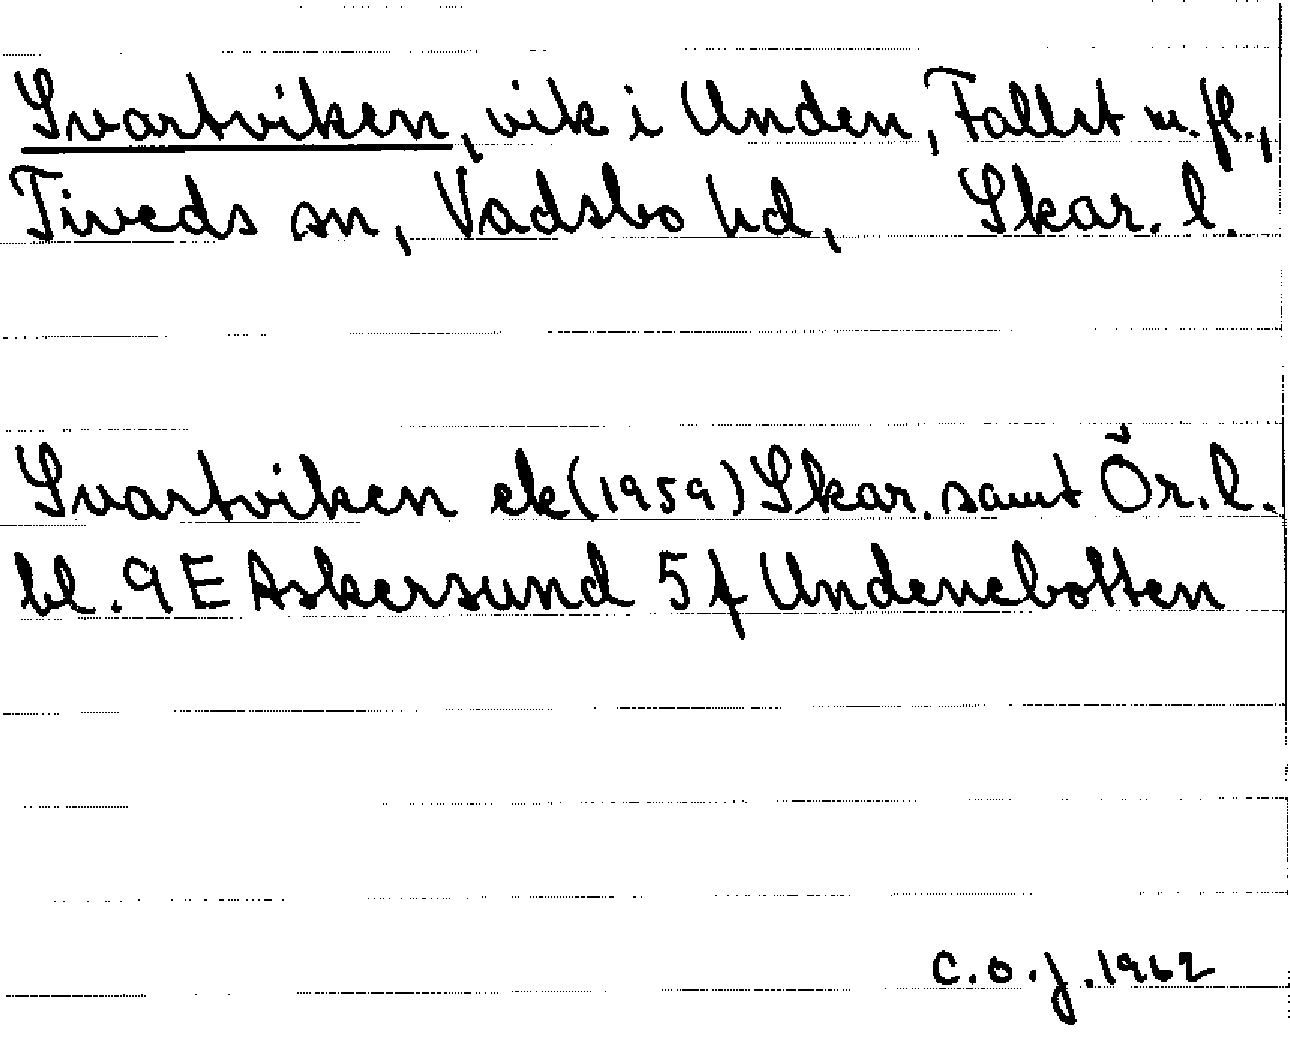 Svartviken, vik i Unden, Fallet m.fl.,
Tiveds sn, Vadsbo hd, Skar. l.
Svartviken ek (1959) Skar. samt Ör. l.
bl. 9E Askersund 5f Undenebotten
C.O.J. 1962